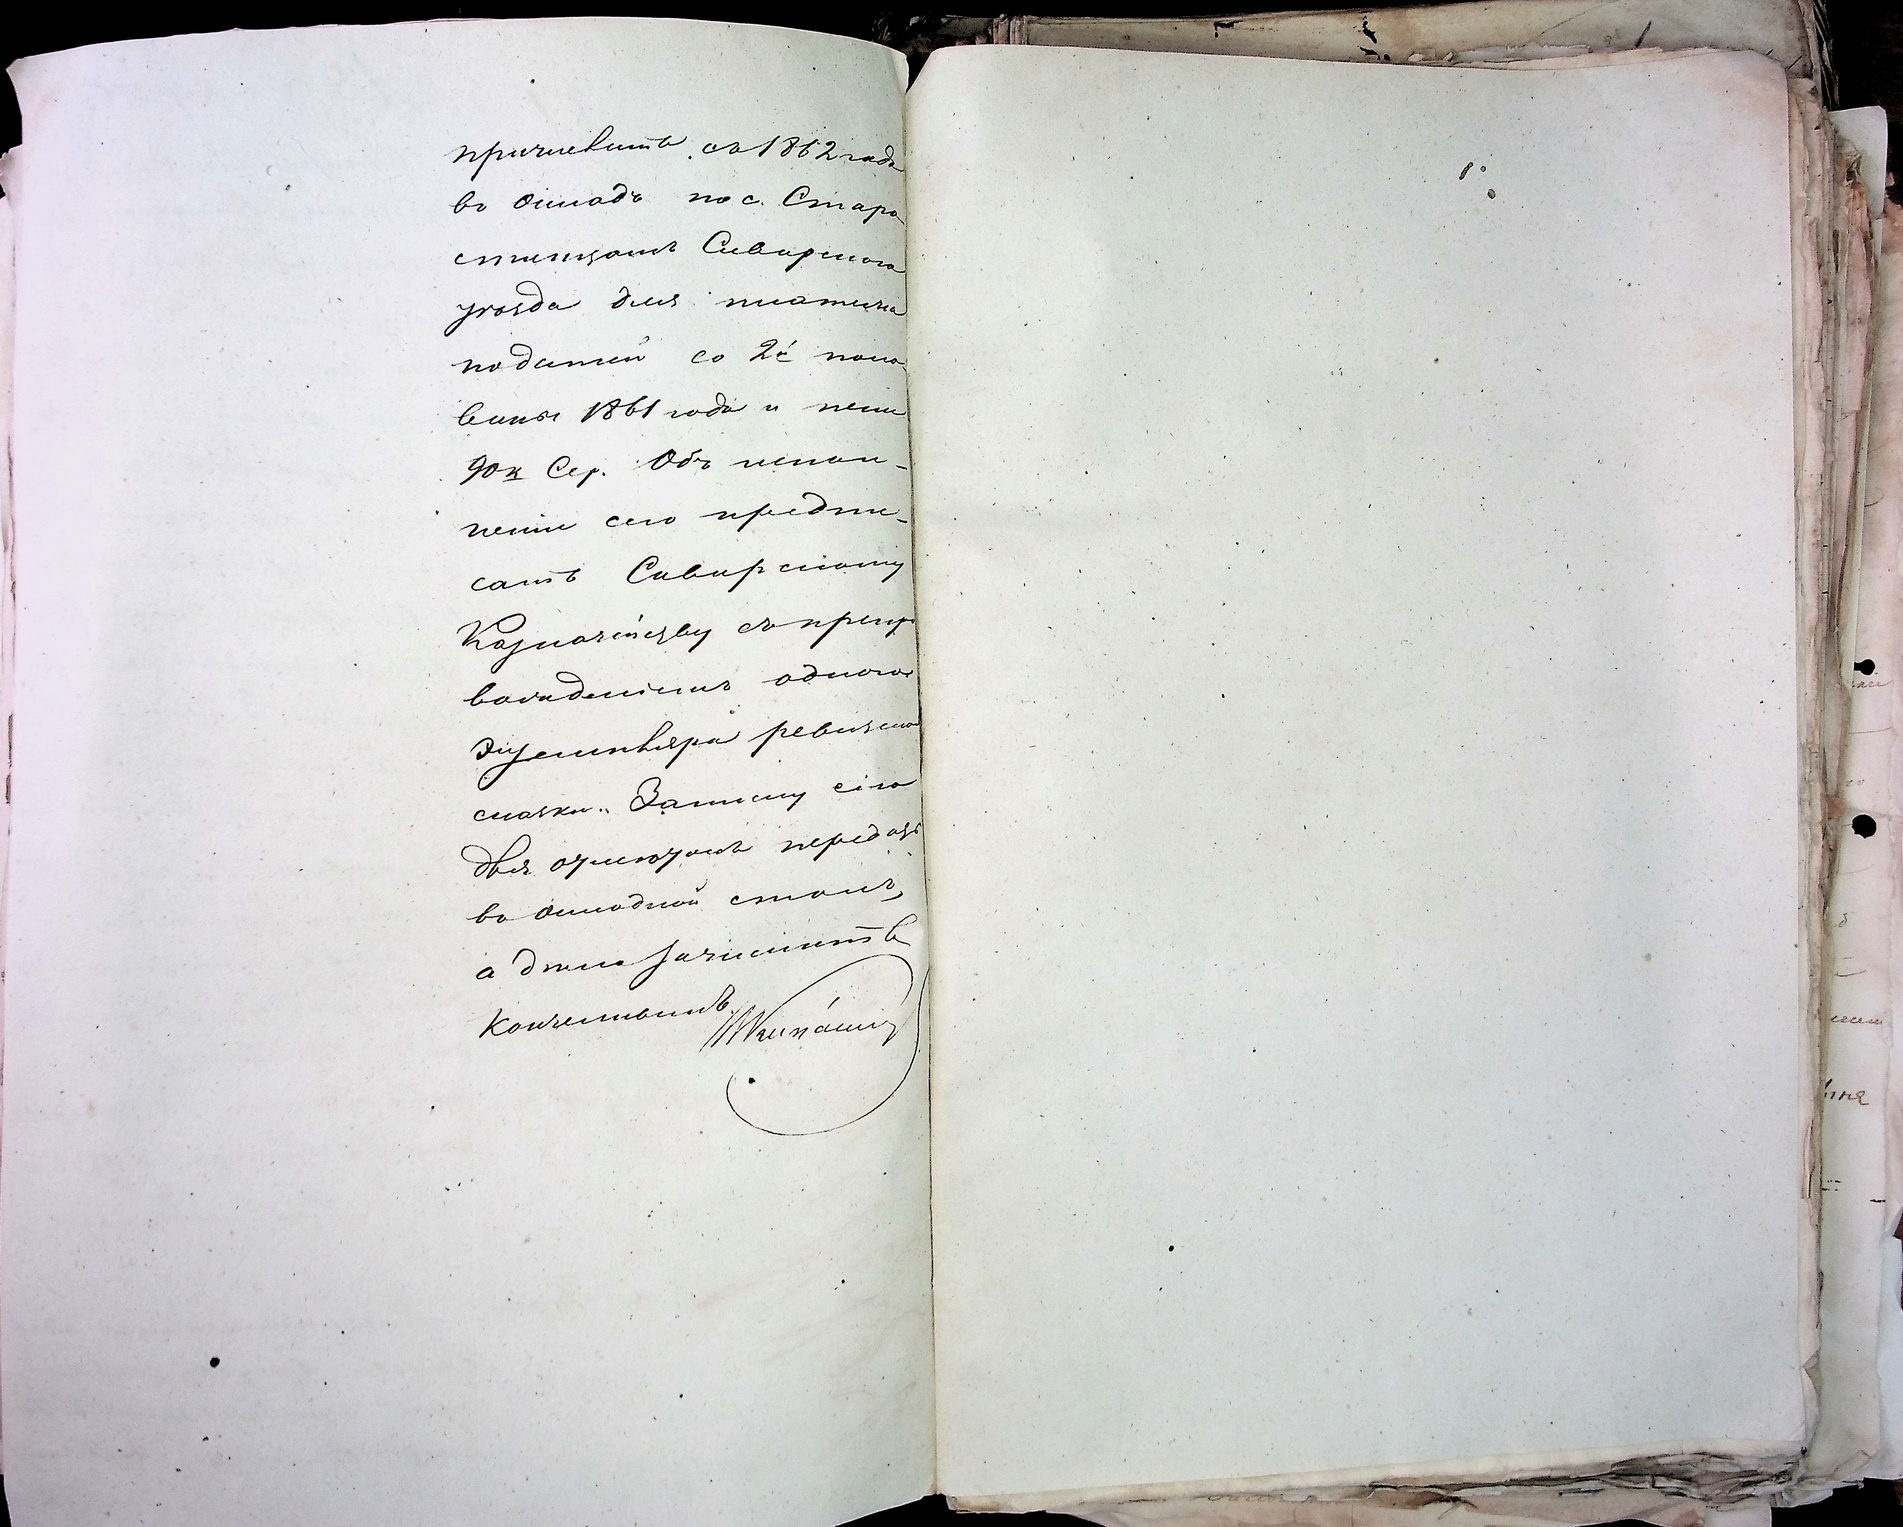 причислить съ 1862 года
въ окладъ по с. Старо
стинцамъ Сквирского
уѣзда для платежа
податей со 2й поло
вины 1861 года и пени
90 к Сер. Объ испол-
неніи сего предпи-
сать Сквирскому
Казначейству съ препро
вожденіемъ одного
экземпляра ревизской
сказки. Записку сію
для отметокъ передать
во окладной столъ,
а дѣло зачислить
конченнымъ.